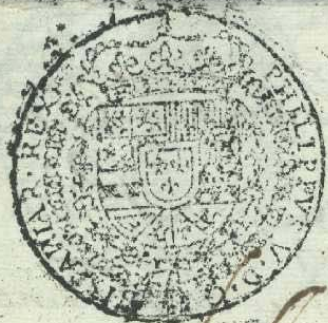 PHILIPVS V D G HISPANIAR REX